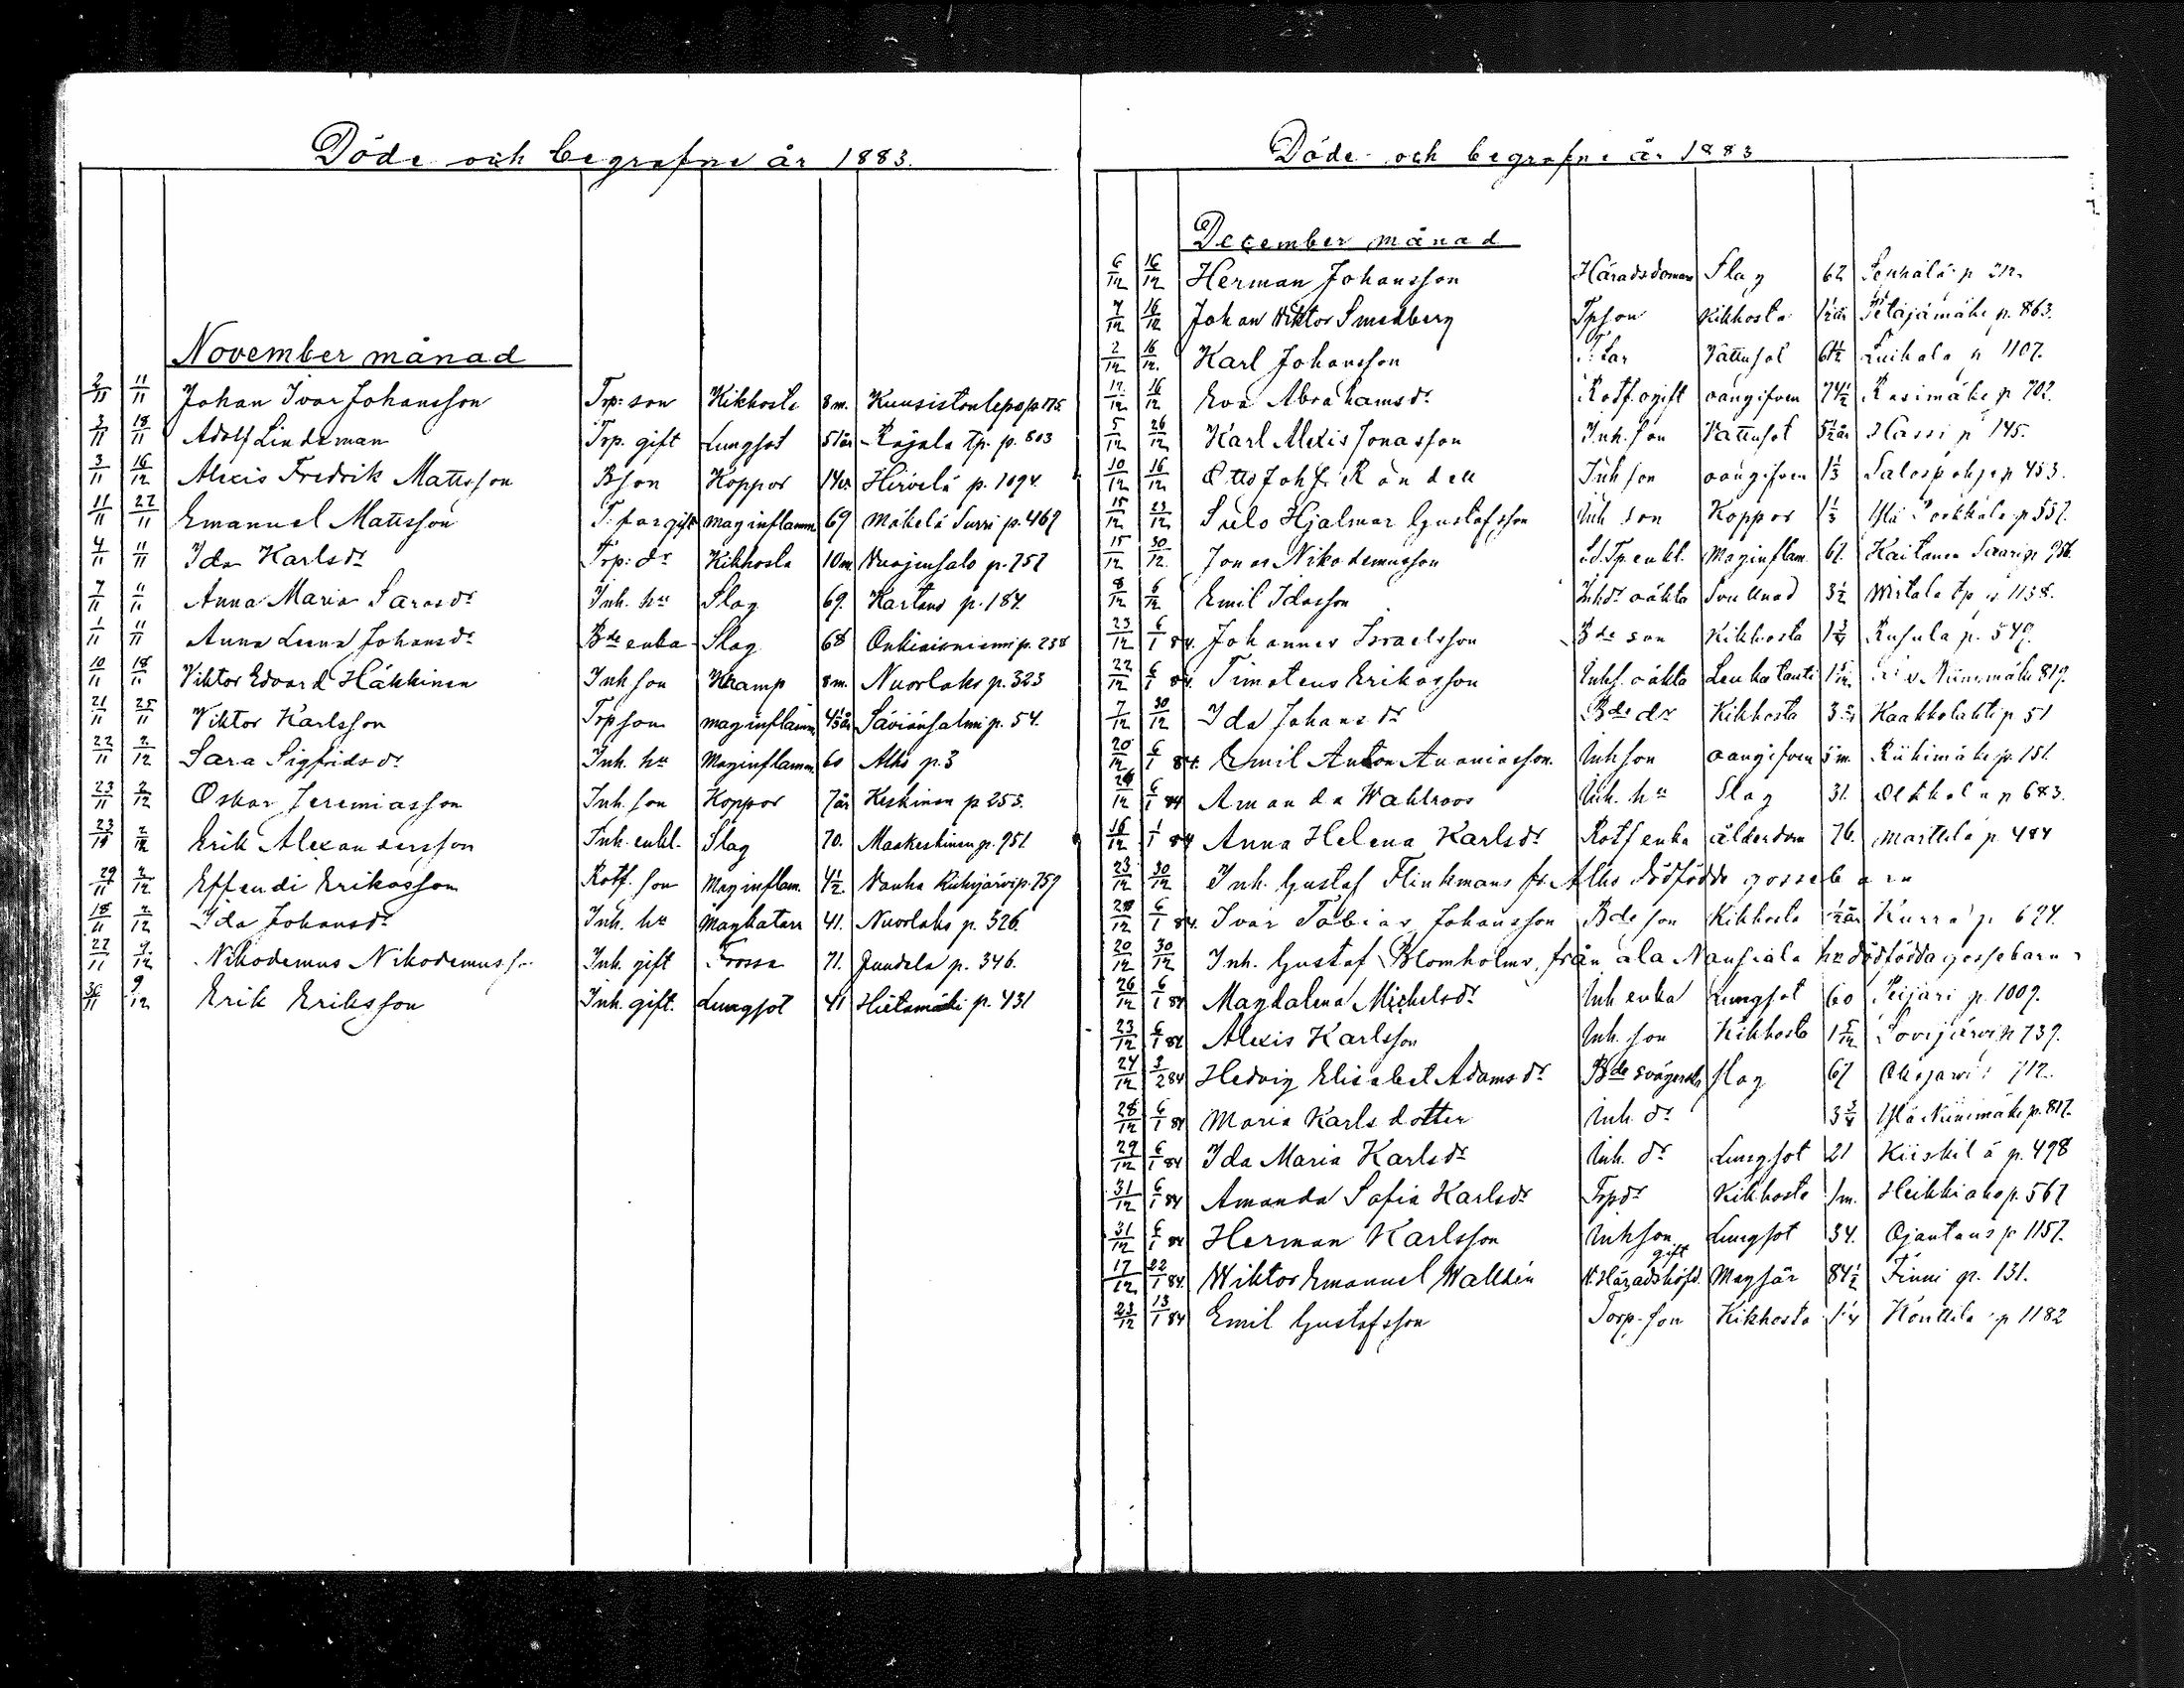 Döde och begrafne år 1883.
November månad
2/11 11/11 Johan Ivar Johansson Trp: son Kikhosta 8 m. Kuusistonlepo p. 175
3/11 18/11 Adolf Lindeman Trp. gift Lungsot 51 år Rajala Tp. p. 803
3/11 16/12 Alexis Fredrik Mattsson Bson Koppor Hirvelä p. 1094.
11/11 22/11 Emanuel Mattsson T: far gift maginflamm. 69 Mäkelä Surri p. 467
4/11 11/11 Ida Karlsdr Trp: dr Kikhosta 10 m Vuojinsalo p. 757
7/11 11/11 Anna Maria Sarasdr Inh. hu Slag 69. Kartano p. 184.
1/11 11/11 Anna Leena Johansdr Bde enka Slag 68 p. 238
10/11 18/11 Viktor Edvard Häkkinen Inh son Kramp 8 m. Nuorlaks p. 323
21/11 25/11 Viktor Karlsson Trp son maginflamm 4 1/3 år Säviänsalmi p. 54.
22/11 2/12 Sara Sigfridsdr Inh. hu Maginflamm. 60 Alho p. 3
23/11 2/12 Oskar Jeremiasson Inh. son Koppor 7 år Keskinen p 253.
23/11 2/12 Erik Alexandersson Inh. enkl. Slag 70. Maakeskinen p. 951
29/11 2/12 Effendi Eriksson Rotf. son Maginflam. 4 1/2. Vanha Riihijärvi p. 759
18/11 2/12 Ida Johansdr Inh. hu Magkatarr 41. Nuorlaks p. 326.
27/11 9/12 Nikodemus Nikodemuss. Inh. gift Frossa 71. Juudela p. 346.
30/11 9/12 Erik Eriksson Inh. gift. Lungsot 41 Hietamäki p. 431
Döde och begrafne år 1883
December månad
6/12 16/12 Herman Johansson Häradsdomare Slag 62 p 212.
7/12 16/12 Johan Viktor Smedberg Tpson Kikhosta 1 1/2 år Petäjämäki p. 863.
2/12 16/12. Karl Johansson Vattusot 61 1/2 Luikala p 1107.
12/12 16/12 Eva Abrahamsdr Rotf. ogift oangifven 74 1/2 Rasimäki p 702.
5/12 26/12 Karl Alexis Jonasson Inh. son Vattusot 5 1/2 år Hassi p 145.
10/12 16/12 Otto Joh. f. Rondell Inh son oangifven 1 1/3 Salospohja p 453.
15/12 23/12 Sulo Hjalmar Gustafsson Inh son Koppor 1 1/3 Ylä p 557.
15/12 30/12 Jonas Nikodemusson Ld. Tp. enkl. Maginflam. 67. Kaitanen Saari p 956.
8/12 6/12 Emil Idasson Inhdr oäkta Svullnad 3 1/2 tp p 1138.
23/12 6/1 84. Johannes Israelsson Bde son Kikhosta 1 3/4 Ruhula p. 549.
22/12 6/1 84. Timoteus Eriksson Inhs. oäkta Leukatauti 1 5/12 Niinimäki 819.
7/12 30/12 Ida Johansdr Bde dr Kikhosta Kaakkolahti p 51
20/12 6/1 84. Emil Anton Ananiasson. Inh son oangifven 5 m. Riihimäki p. 151.
26/12 6/1 84 Amanda Wahlroos Inh. hu Slag 31. Olkkola p 683.
16/12 1/1 84 Anna Helena Karlsdr Rotf enka ålderdom 76. Marttila p 484
23/12 30/12 Inh. Gustaf Flinkmans fr. Alho dödfödde gossebarn
28/12 6/1 84. Ivar Tobias Johansson Bde son Kikhosta 1/2 år Kurra p 624.
20/12 30/12 Inh. Gustaf Blomholms, från ala Nansiala hu dödfödda gossebarn
26/12 6/1 84 Magdalena Michelsdr Inh enka Lungsot 60 Peijari p. 1009.
23/12 6/1 84 Alexis Karlsson Inh. son Kikhosta 1 5/12 Sovijärvi p 739.
24/12 3/2 84 Hedvig Elisabet Adamsdr Bde svägersk. slag 67 712.
28/12 6/1 84 Maria Karlsdotter Inh. dr 3 3/4 Ylä Niinimäki p. 817.
29/12 6/1 84 Ida Maria Karlsdr Inh. dr Lungsot 21 Kiiskilä p. 498
31/12 6/1 84 Amanda Sofia Karlsdr Trpdr Kikhosta 1 m. Heikkiaho p. 567
31/12 6/1 84 Herman Karlsson Inhson Lungsot 34. Ojantaus p 1157.
17/12 22/1 84. Wiktor Emanuel Walldén gift V. Häradshöfd. Magsår 84 1/2 Finni p. 131.
23/12 13/1 84 Emil Gustafsson Torp. son Kikhosta 1 1/4 Konttila p 1182